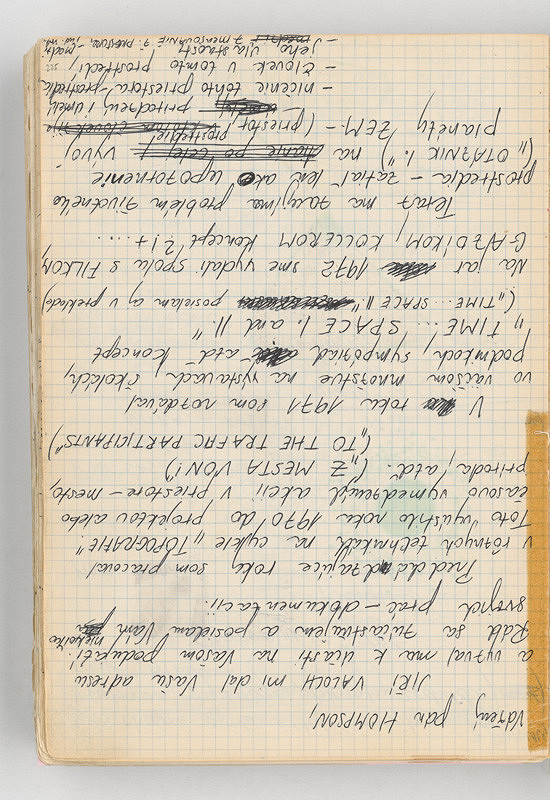 Vážený pán HOMPSON,
JIŘÍ VALOCH mi dal Vašu adresu
a vyzval ma k účasti na Vašom podujatí.
Rád sa zúčastňujem a posielam Vám niekoľko
svojich prác – dokumentácií.
roky som pracoval
v rôznych technikách na cykle „TOPOGRAFIE“.
Toto vyústilo roku 1970 do projektov alebo
časovo vymedzených akcií v priestore – mesto,
príroda, atď. („Z MESTA VON“)
(„TO THE TRAFFIC PARTICIPANTS“)
V roku 1971 som rozdával
vo väčšom množstve na výstavách, školách,
podnikoch, sympóziách atď koncept
„TIME... SPACE I. and II.“
(„TIME... SPACE II.“ posielam aj v preklade)
Na jar 1972 sme vydali spolu s FILKOM,
GAZDÍKOM, KOLLEROM koncept ?!+....
Teraz ma zaujíma problém životného
prostredia – zatiaľ len ako upozornenie
(„OTÁZNIK !.“) na vývoj
planéty ZEM – (priestor, prostredie
prirodzený i umelý
– ničenie tohto priestoru – prostredia,
– človek v tomto prostredí,
jeho vlastnosti